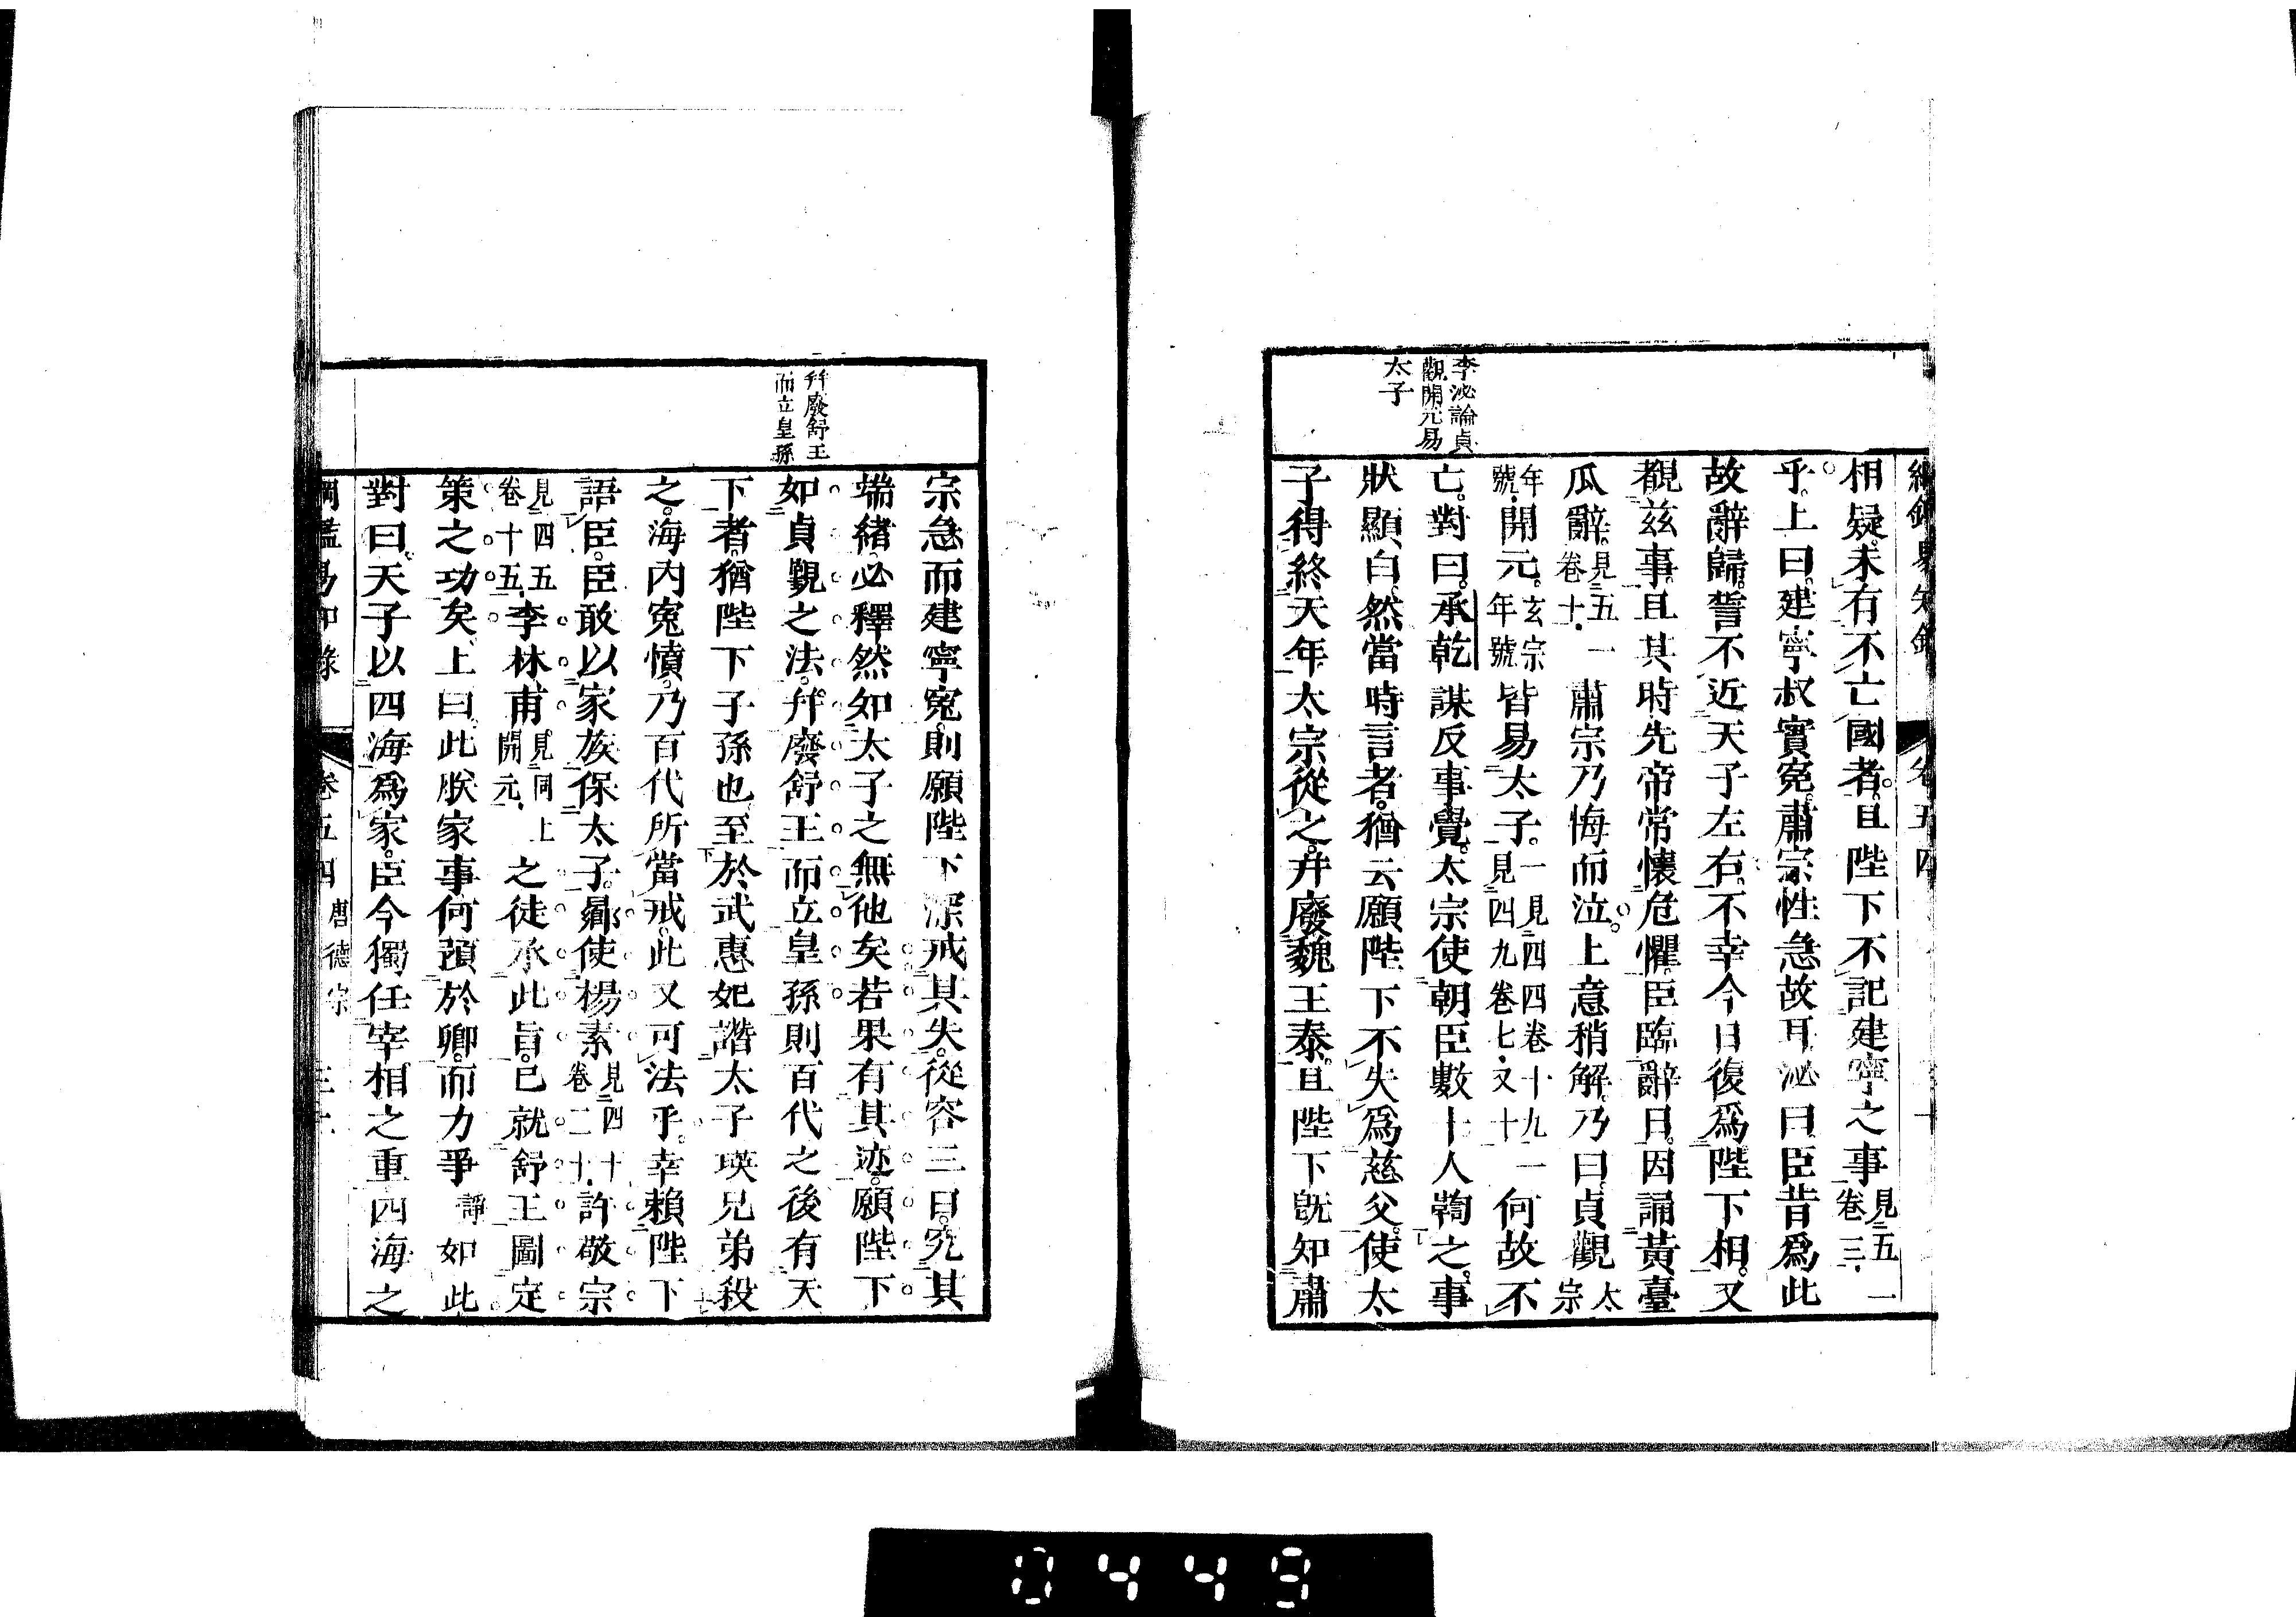 李泌論貞
觀開元易
太子
相疑未有不亡國者且陛下不記建寧之事見五一卷三
乎上曰建寧叔實冤肅宗性急故耳泌曰臣昔爲此
故辭歸誓不近天子左右不幸今日復爲陛下相又
覩茲事且其時先帝常懷危懼臣臨辭日因誦黃臺
瓜辭見五一卷十肅宗乃悔而泣上意稍解乃曰貞觀太宗
年號開元玄宗年號皆易太子一見四四卷十九一見四九卷七又十何故不
亡對曰承乾謀反事覺太宗使朝臣數十人鞫之事
狀顯白然當時言者猶云願陛下不失爲慈父使太
子得終天年太宗從之幷廢魏王泰且陛下旣知肅
幷廢舒王
而立皇孫
宗急而建寧冤則願陛下深戒其失從容三日究其
端緒必釋然知太子之無他矣若果有其迹願陛下
如貞觀之法幷廢舒王而立皇孫則百代之後有天
下者猶陛下子孫也至於武惠妃譖太子瑛兄弟殺
之海內冤憤乃百代所當戒此又可法乎幸賴陛下
語臣臣敢以家族保太子曏使楊素見四十卷二十許敬宗
見四五卷十五李林甫見同上開元之徒承此旨已就舒王圖定
策之功矣上曰此朕家事何預於卿而力爭諍如此
對曰天子以四海爲家臣今獨任宰相之重四海之
綱鑑易知錄 卷五四 唐德宗
0449